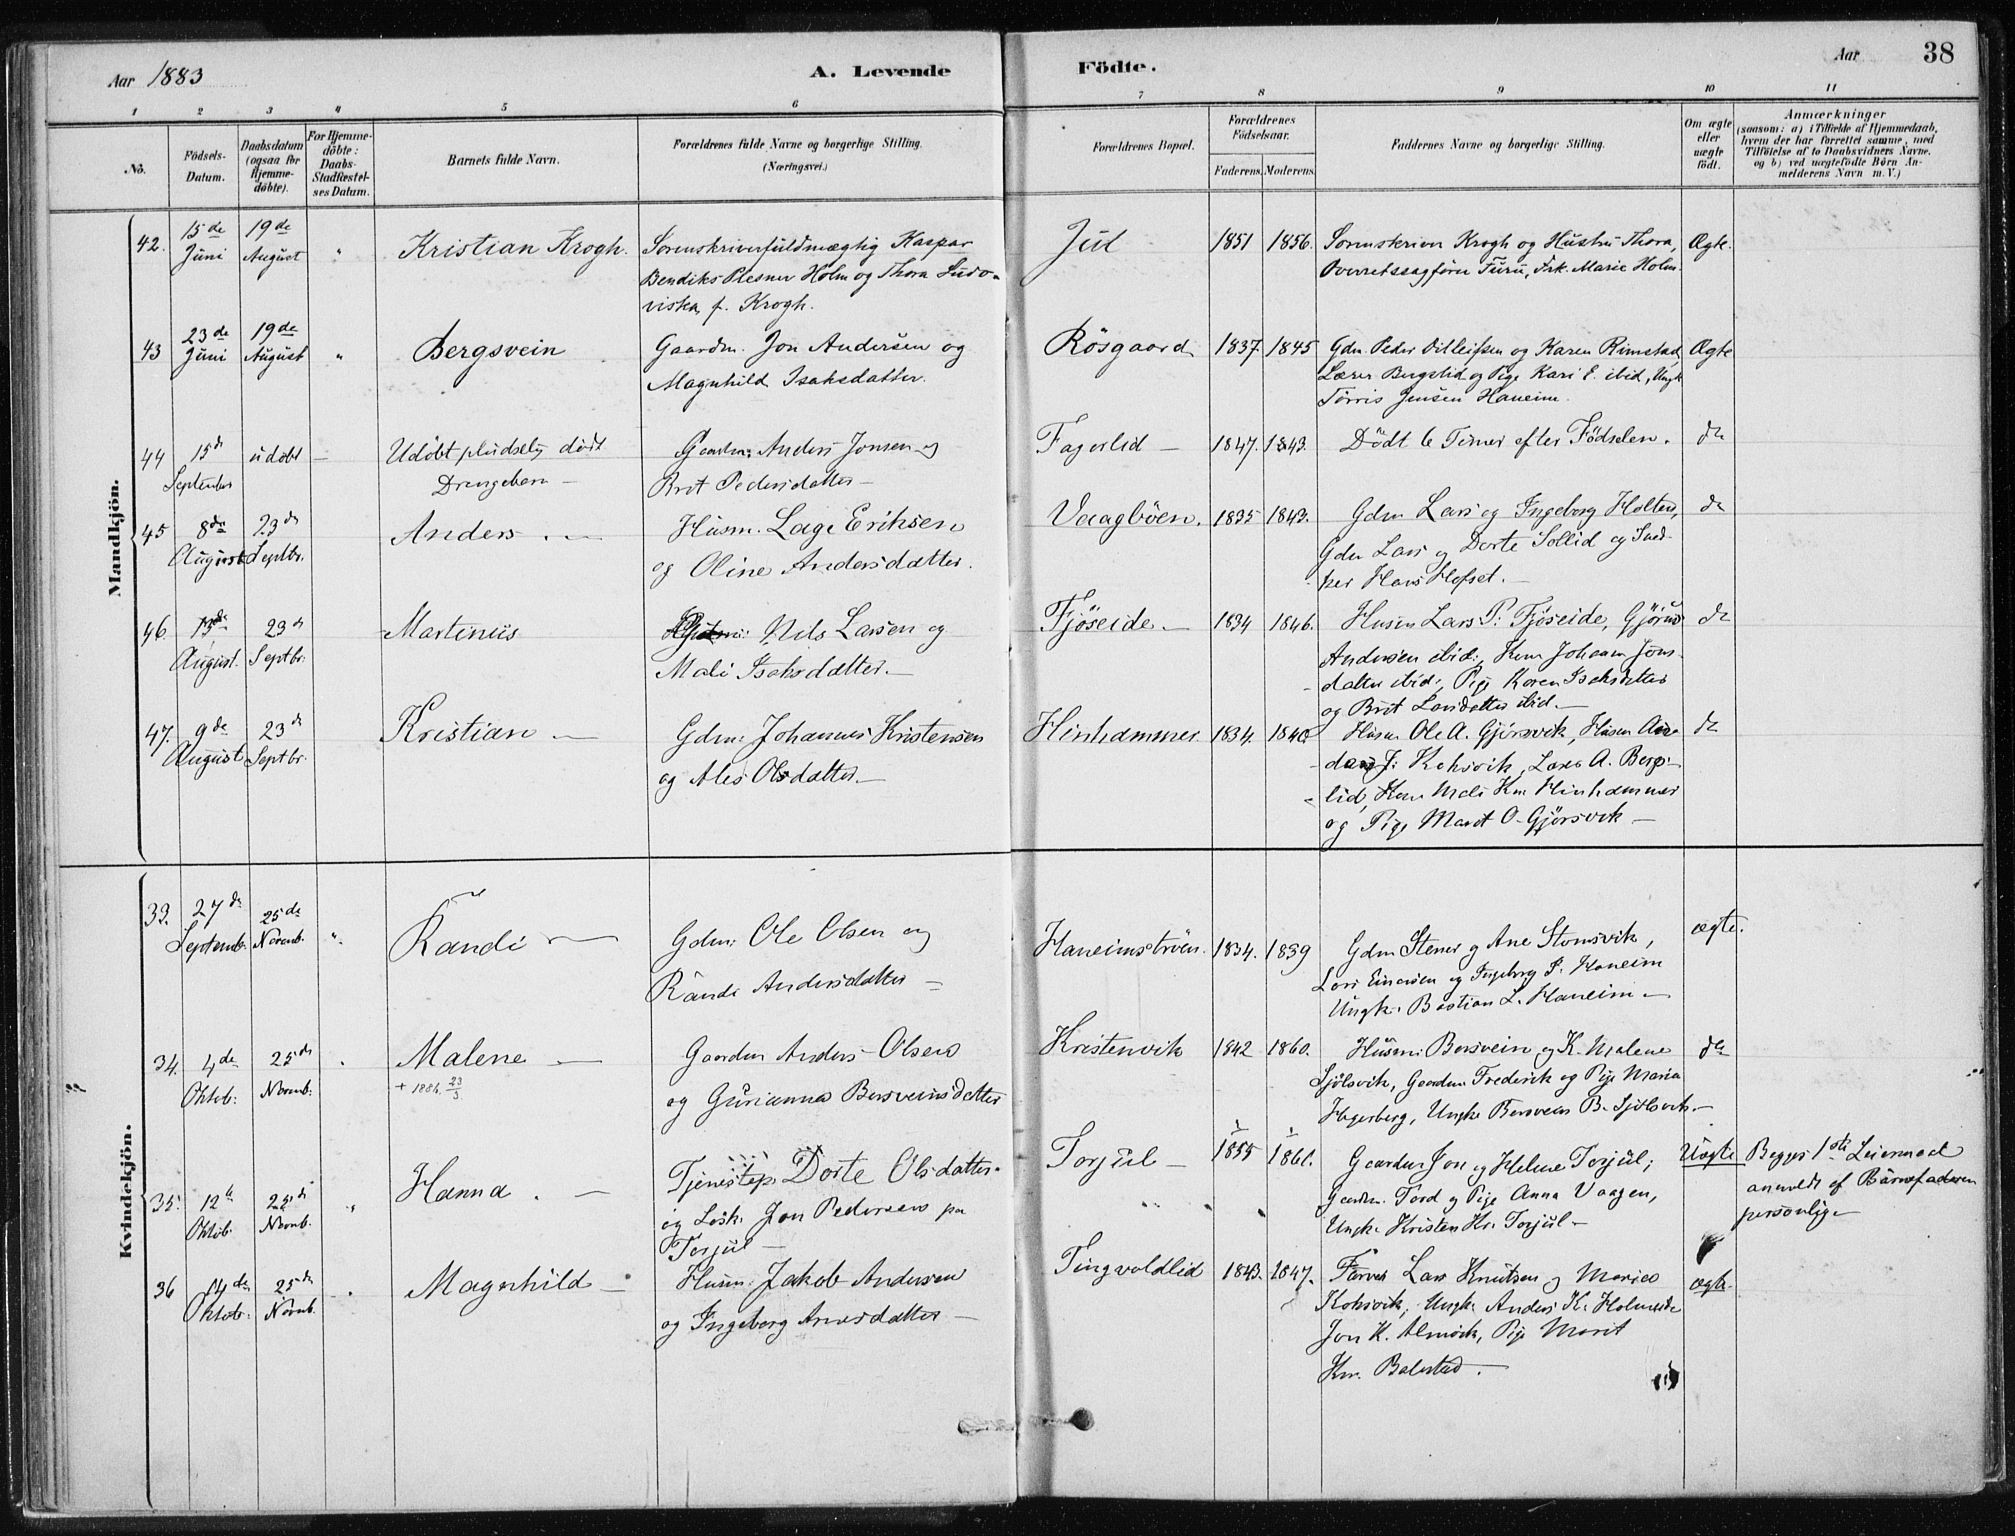 Aar 1883
A. Levende
Födte.
Aar
38
1 2 3 4 5 6 7 8 9 10 11
No.
Födsels-
Datum.
Daabsdatum
(ogsaa for
Hjemme-
döbte).
For Hjemme-
döbte:
Daabs-
Stadfæstel-
ses Datum.
Barnets fulde Navn.
Forældrenes fulde Navne og borgerlige Stilling.
(Næringsvei.)
Forældrenes Bopæl.
Forældrenes
Födselsaar.
Faderens.
Moderens.
Faddernes Navne og borgerlige Stilling.
Om ægte
eller
uægte
födt.
Anmærkninger
(saasom: a) i Tilfælde af Hjemmedaab,
hvem der har forrettet samme, med
Tilföielse af to Daabsvidners Navne.
og b) ved uægtefödte Börn An-
melderens Navn m. V.)
Mandkjön.
42. 15de Juni
19de August
"
Kristian Krogh.
Sorenskriverfuldmægtig Kaspar
Bendiks Plesner Holm og Thora Ludo-
viska, f. Krogh.
Jul
1851 1856.
Sorenskriver Krogh og Hustru Thora,
Overretssagförer Furu, Frk. Marie Holm.
Ægte.
43 23de Juni
19de August
"
Bergsvein
Gaardm. Jon Andersen og
Magnhild Isaksdatter.
Rösgaard
1837. 1845
Gdm. Peder Ditleifsen og Karen Rimstad,
Lærer Bergslid og Pige Kari E. ibid, Ungk
Törris Jensen Haneim.
Ægte
44 15de September
udöbt
Udöbt pludselig dödt
Drengebarn —
Gaardm: Anders Jonsen og
Brit Pedersdatter —
Fagerlid —
1847. 1843.
Dödt 6 Timer efter Födselen.
do
45 8de August
23de Septbr.
Anders. —
Husm. Lage Eriksen
og Oline Andersdatter.
Vaagböen.
1835 1843.
Gdm Lars og Ingeborg Holten,
Gdm Lars og Dorte Sollid og Sned-
ker Hans Hofset. —
do
46. 13de August.
23de Septbr.
Martinus
Nils Larsen og
Mali Isaksdatter. —
Fjöseide. —
1834 1846.
Husm Lars P. Fjöseide,
Andersen ibid:, Kone Johanna Jons-
datter ibid:, Pige Karen Isaksdatter
og Brit Larsdatter ibid. —
do
47. 9de August
23de Septbr.
Kristian —
Gdm: Johannes Kristensen
og Ales Olsdatter. —
Hinhammer
1834. 1840
Husm Ole A. Gjörsvik, Husm
J: Koksvik, Lars A. Bergs-
lid, Kone Mali Kr. Hinhammer
og Pige Marit O. Gjörsvik —
do
Kvindekjön.
33. 27de Septemb.
25de Novemb.
"
Randi —
Gdm: Ole Olsen og
Randi Andersdatter —
Haneimströen.
1834. 1839
Gdm Stener og Ane Stomsvik,
Lars Einarsen og Ingeborg P. Haneim
Ungk. Bastian L. Haneim —
ægte.
34. 4de Oktob:
25de Novmb:
Malene —
+ 1884 23/3
Gaardm Anders Olsen
og Gurianna Bersveinsdatter
Kristenvik
1842 1860.
Husm: Bersvein og K. Malene
Sjölsvik, Gaardm Frederik og Pige Maria
Hagerberg, Ungk Bersvein B. Sjölsvik. —
do
35. 12te Oktob.
25de Novmb.
"
Hanna. —
Tjenestep. Dorte Olsdatter.
og Losk. Jon Pedersen paa
Torjul —
Torjul —
1855 1861.
Gaardm Jon og Helene Torjul;
Gaardm. Tord og Pige Anna Vaagen,
Ungk. Kristen Kr. Torjul —
Uægte
Begges 1ste Leiermaal
anmeldt af Barnefaderen
personlig —
36 14de Oktob:
25de Novmb.
Magnhild —
Husm: Jakob Andersen
og Ingeborg Arnesdatter —
Tingvoldlid
1843. 1847.
Farver Lars Knutsen og Marie
Koksvik, Ungk. Anders K. Holmeide
Jon K. Almvik, Pige Marit
Kr. Bolestad. —
ægte